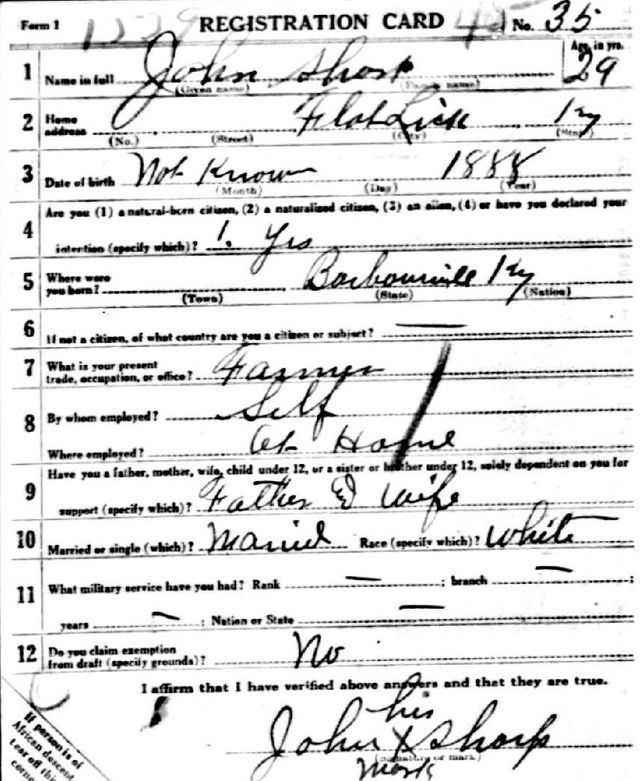 Form 1 REGISTRATION CARD No. 35
Age, in yrs.
1 Name in full John Sharp 29
(Given name) (Family name)
2 Home address Flat Lick Ky
(No.) (Street) (City) (State)
3 Date of birth Not Known 1888
(Month) (Day) (Year)
4 Are you (1) a natural-born citizen, (2) a naturalized citizen, (3) an alien, (4) or have you declared your
intention (specify which)? 1. Yes
5 Where were you born? Barbourville Ky
(Town) (State) (Nation)
6 If not a citizen, of what country are you a citizen or subject? —
7 What is your present trade, occupation, or office? Farmer
8 By whom employed? Self
Where employed? At Home
9 Have you a father, mother, wife, child under 12, or a sister or brother under 12, solely dependent on you for
support (specify which)? Father & Wife
10 Married or single (which)? Maried Race (specify which)? White
11 What military service have you had? Rank — ; branch — ;
years — ; Nation or State —
12 Do you claim exemption from draft (specify grounds)? No
I affirm that I have verified above answers and that they are true.
his
John X Sharp
(Signature or mark)
Mark
If person is of
African descent
tear off this
corner